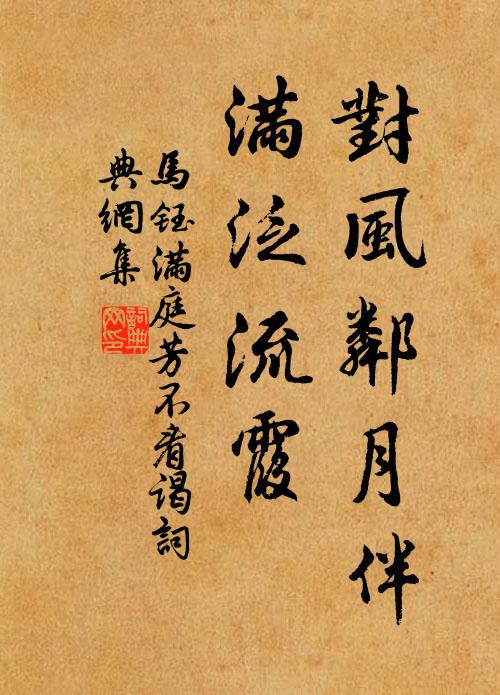 對風鄰月伴
滿泛流霞
馬鈺滿庭芳不看謁詞
典網集
詞典
網印